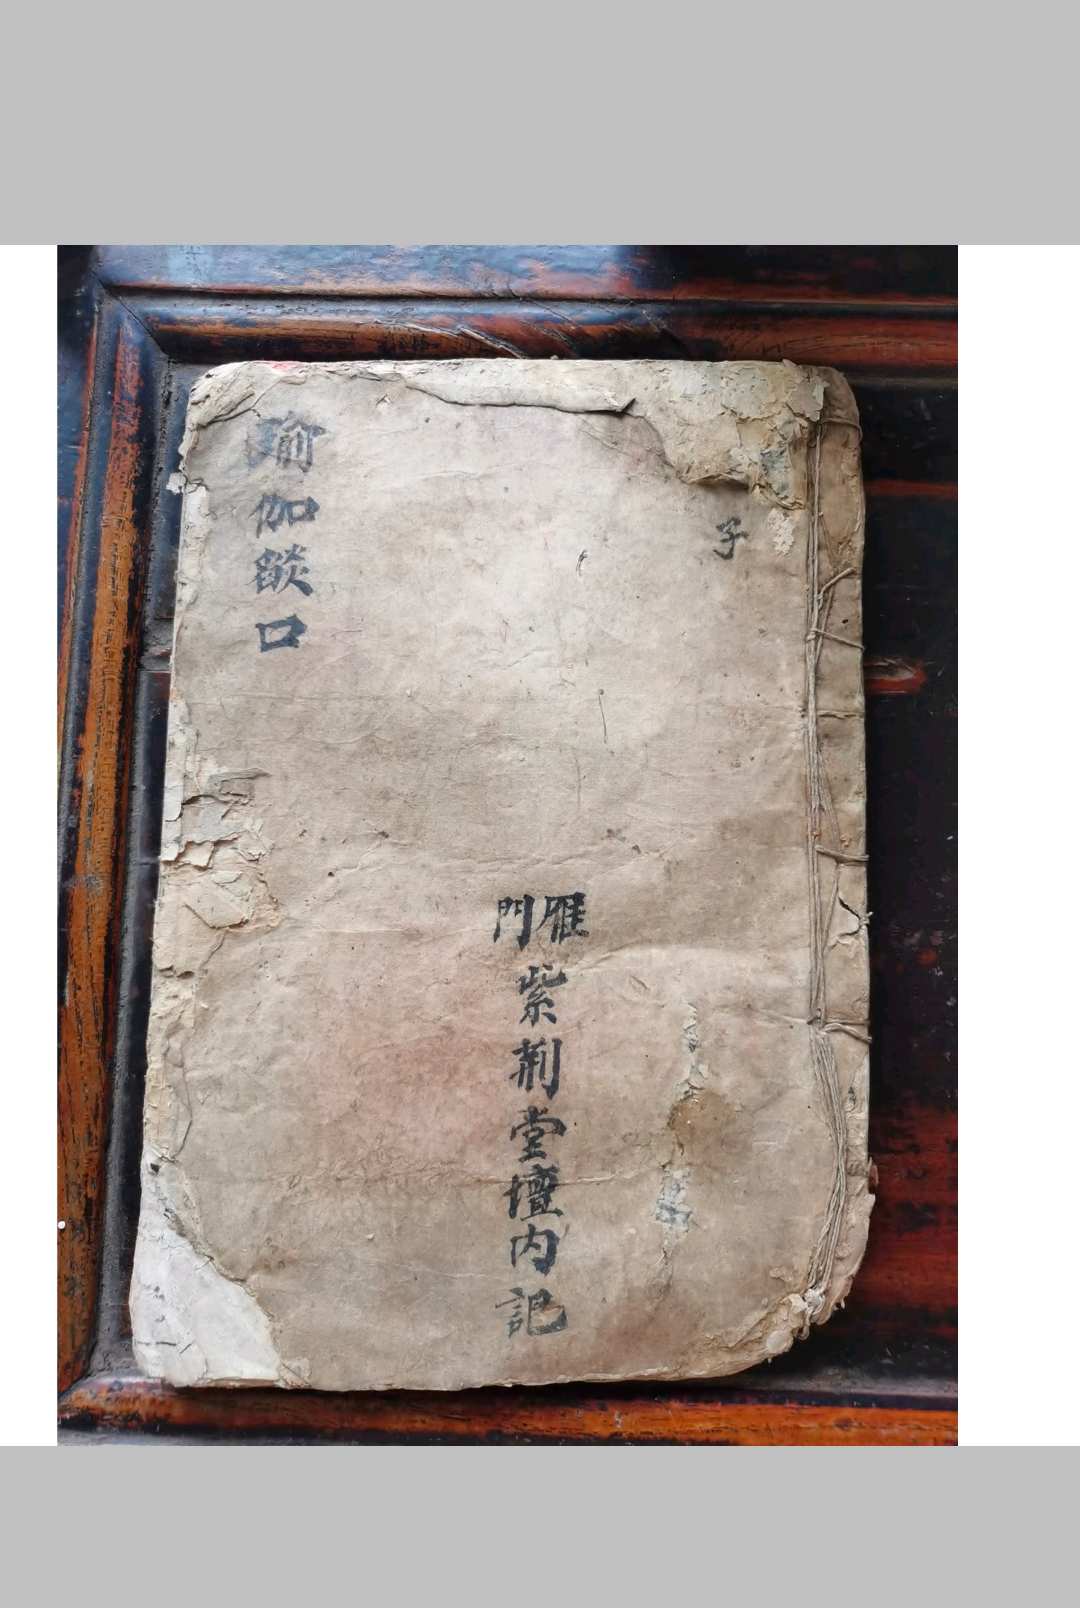 子
雁門紫荆堂壇内記
瑜伽燄口